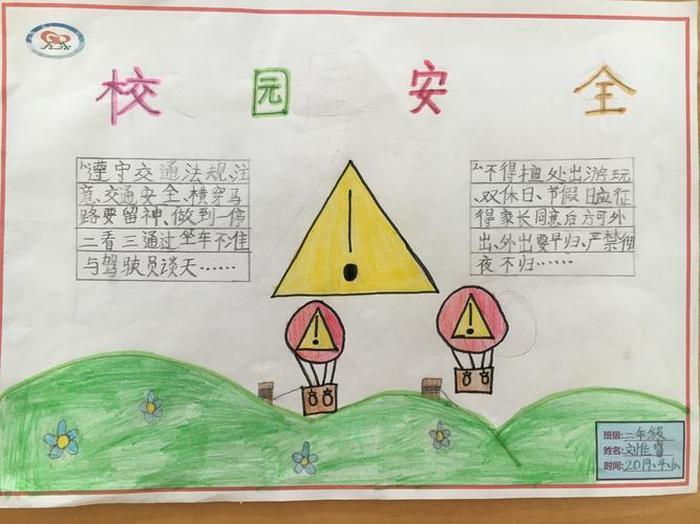 校 园 安 全
1、遵守交通法规、注
意、交通安全、横穿马
路要留神、做到一停
二看三通过坐车不准
与驾驶员谈天……
2、不得擅处出游玩
、双休日、节假日应征
得家长同意后方可外
出、外出要早归、严禁彻
夜不归……
班级:二年级
姓名:刘
时间:2019.4.6.